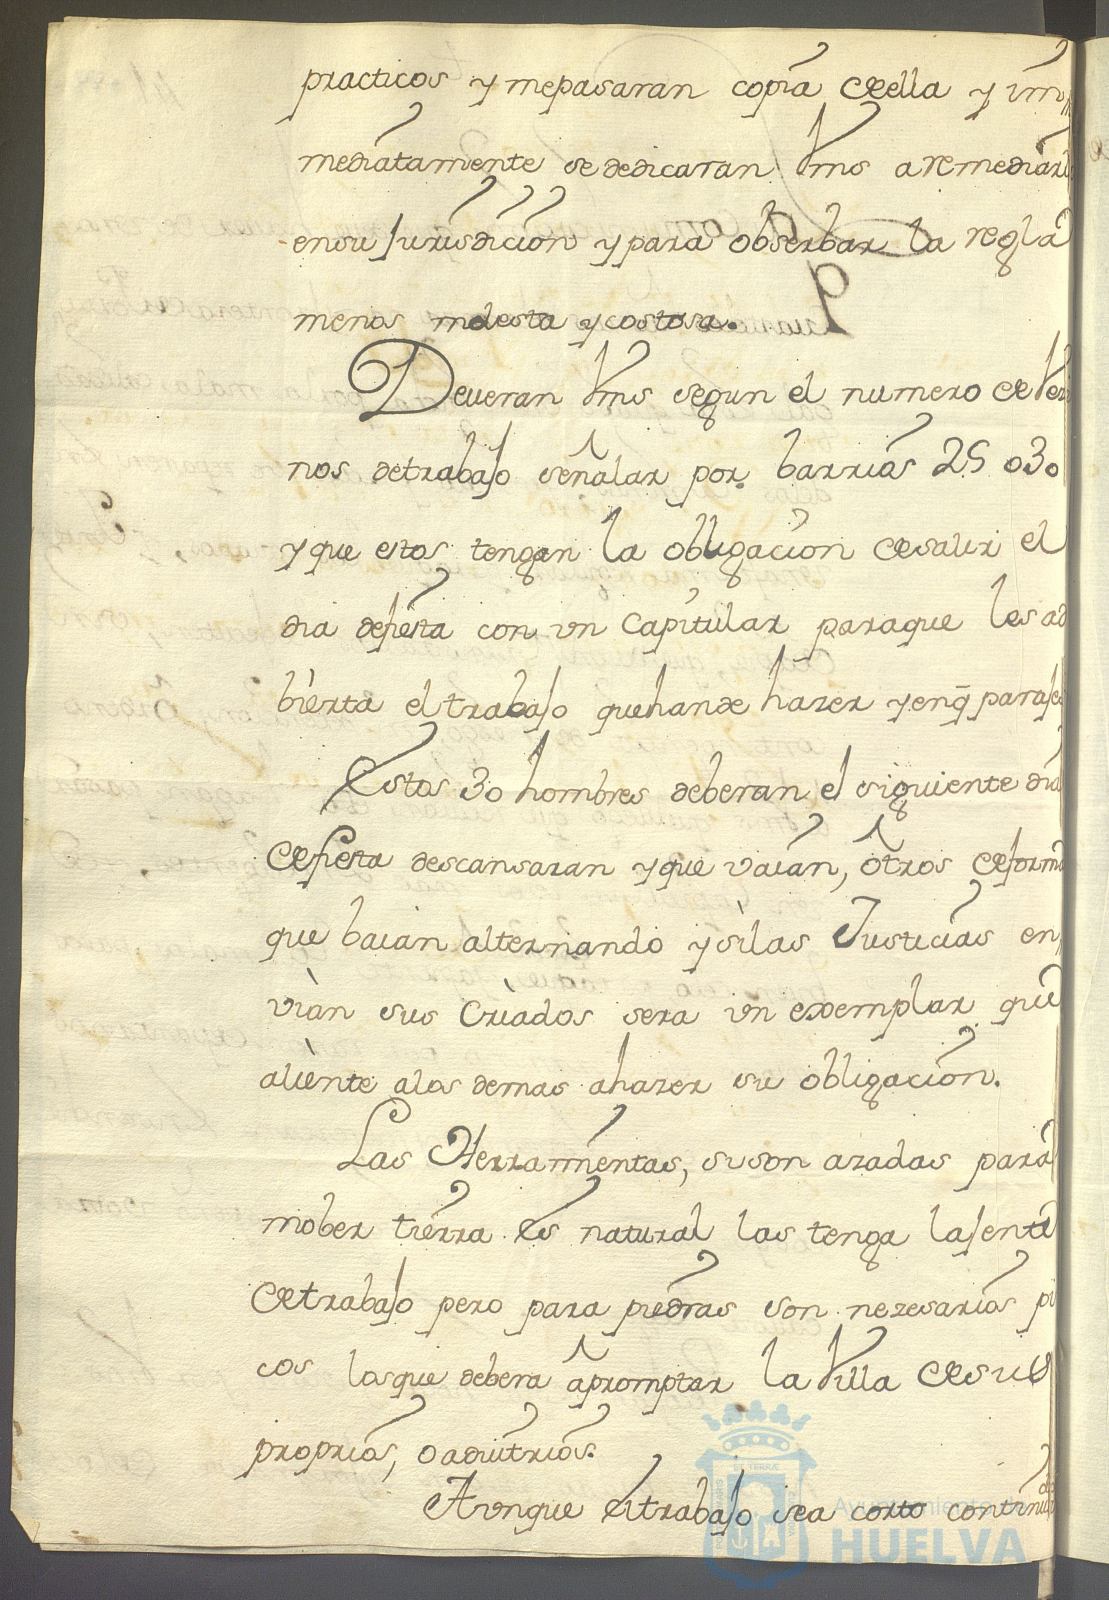 practicos y mepasaran copia deella y im
mediatamente se dedicaran Vms a remediarl
ensu Jurisdicion y para obserbar la regla
menos molesta y costosa.
Deveran Vms segun el numero de Vezi
nos detrabajo señalar por barrios 25 o 30
y que estos tengan la obligacion desalir el
dia defiesta con un Capitular paraque les ad
bierta el trabajo quehande hazer y enq̃ paraje
Estos 30 hombres deberan el siguiente dia
defiesta descansaran y que vaian, otros deforma
que baian alternando y silas Justicias en
vian sus Criados sera un exemplar que
aliente alos demas ahazer su obligacion.
Las Herramientas, suson azadas para
mober tierra es natural las tenga lajente
detrabajo pero para piedras son nezesarios pi
cos losque debera apromptar la Villa desus
proprios, o aduitrios.
Aunque eltrabajo sea corto continu
Ayuntamiento de
HUELVA